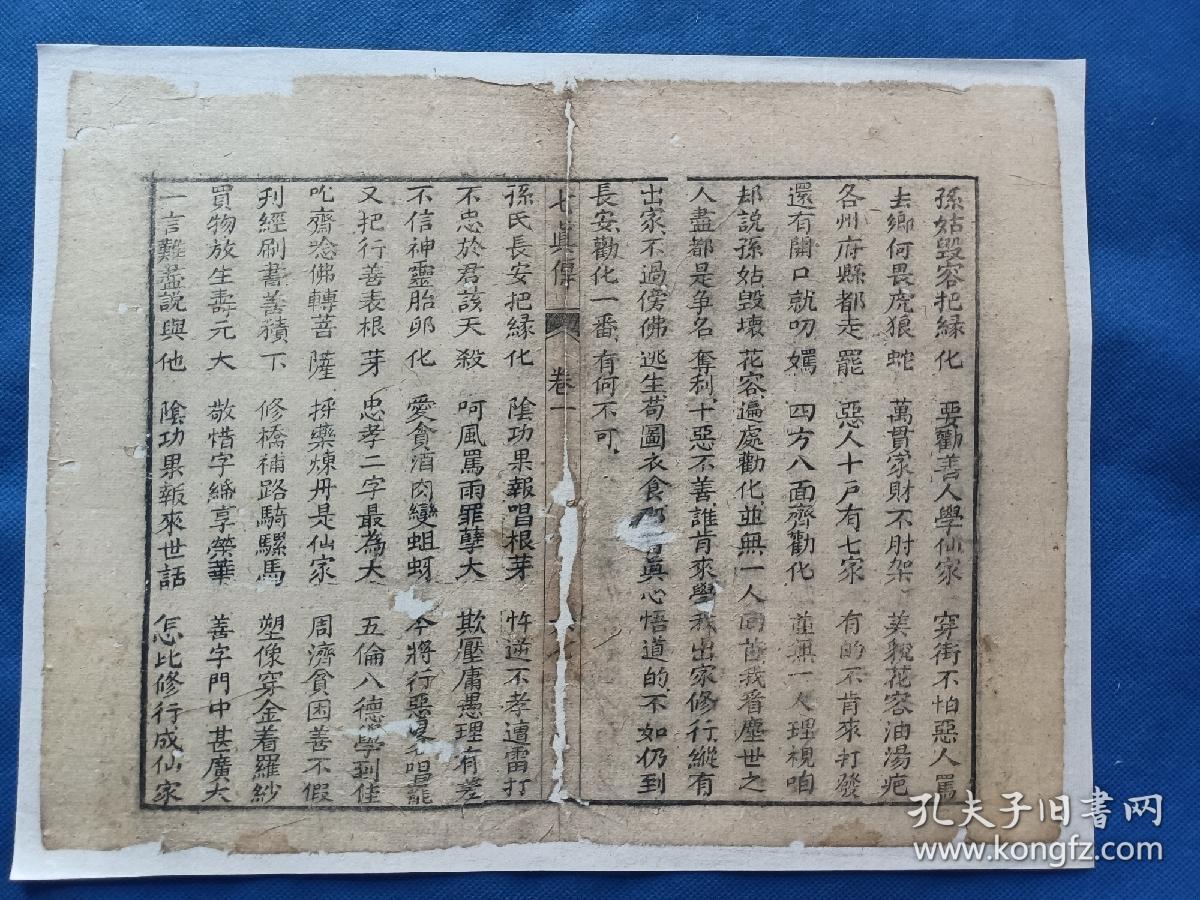 孫姑毀容把緣化　要勸善人學仙家　穿街不怕惡人罵
去鄉何畏虎狼蛇　萬貫家財不肘架　美貌花容油湯疤
各州府縣都走罷　惡人十戶有七家　有的不肯來打發
還有開口就叨罵　四方八面齊勸化　並無一人理視咱
却說孫姑毀壞花容遍處勸化並無一人回首我看塵世之
人盡都是争名奪利十惡不善誰肯來學我出家修行縱有
出家不過傍佛逃生茍圖衣食那有真心悟道的不如仍到
長安勸化一番有何不可
七真傳　卷一
孫氏長安把緣化　陰功果報唱根芽　忤逆不孝遭雷打
不忠於君該天殺　呵風罵雨罪孽大　欺壓庸愚理有差
不信神靈胎卵化　愛貪酒肉變蛆蚜　今將行惡畧唱罷
又把行善表根芽　忠孝二字最為大　五倫八德學到佳
吃齋念佛轉菩薩　採藥煉丹是仙家　周濟貧困善不假
刋經刷書善積下　修橋補路騎騾馬　塑像穿金着羅紗
買物放生壽元大　敬惜字紙享榮華　善字門中甚廣大
一言難盡說與他　陰功果報來世話　怎比修行成仙家
孔夫子旧書网
www.kongfz.com